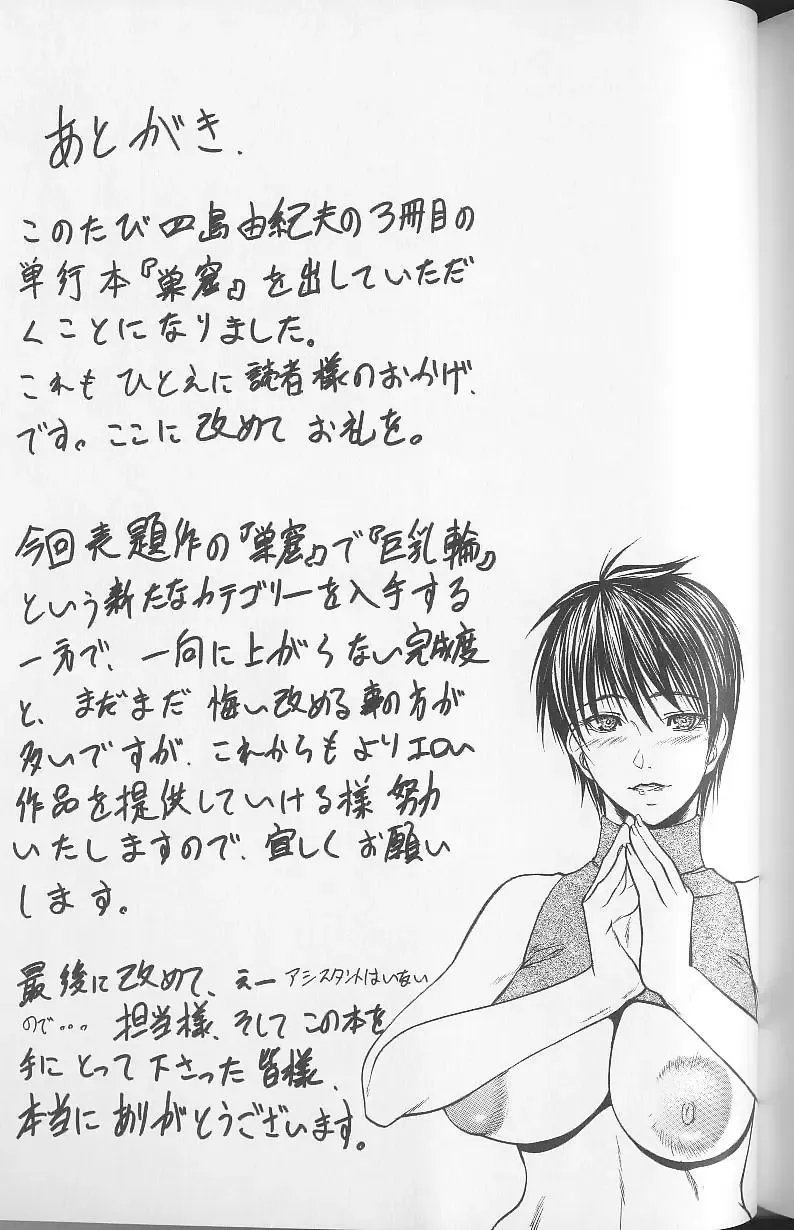 あとがき.
このたび四島由紀夫の3冊目の
単行本『巣窟』を出していただ
くことになりました。
これもひとえに読者様のおかげ
です。ここに改めてお礼を。
今回表題作の『巣窟』で『巨乳輪』
という新たなカテゴリーを入手する
一方で、一向に上がらない完成度
と、まだまだ悔い改める事の方が
多いですが、これからもよりエロい
作品を提供していける様努力
いたしますので、宜しくお願い
します。
最後に改めて、えーアシスタントはいない
ので...担当様、そしてこの本を
手にとって下さった皆様、
本当にありがとうございます。